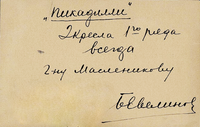 "Пикадилли"
2 кресла 1го ряда
всегда
г-ну Масленикову
БЕвелинов